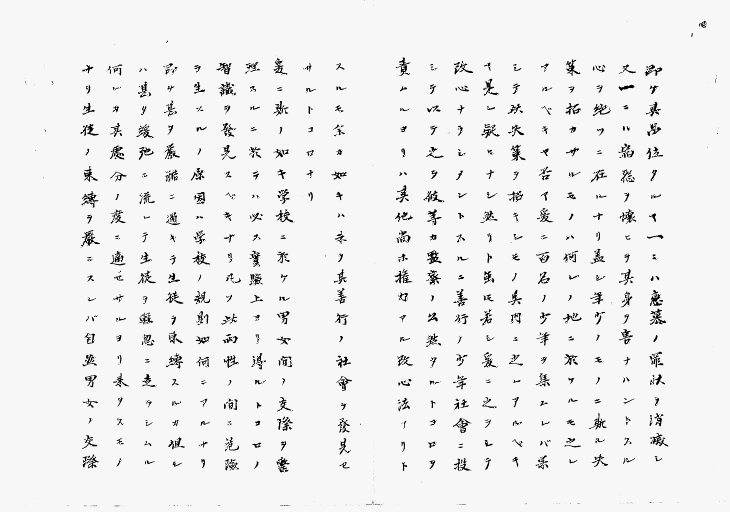 即チ其品位タルヤ一ニハ悪慕ノ罪状ヲ消滅シ
又一ニハ宿怨ヲ懐ヒヲ其身ヲ害ナハントスル
心ヲ絶ツニ在ルナリ蓋シ年少ノモノニ斯ル失
策ヲ招カサルモノハ何レノ地ニ於ケルモ之レ
アルベキヤ若イ爰ニ百名ノ少年ヲ集エレバ景
シテ玦失策ヲ招キシモノ其内ニ之レアルベキ
ヤ是レ疑ヒナシ然リト虽モ若シ爰ニ之ヲシテ
改心ナラシタントスルニ善行ノ少年社會ニ投
シテ以テ之ヲ彼等カ監察ノ公然タルトコロヲ
責ムルヨリハ其他尚ホ権力アル改心法アリト
スルモ余カ如キハ未タ其善行ノ社會ヲ發見セ
サルトコロナリ
爰ニ斯ノ如キ学校ニ於ケル男女間ノ交際ヲ審
理スルニ於テハ必ス實驗上ヨリ得ルトコロノ
智識ヲ發見スベキナリ凡ソ此両性ノ間ニ危險
ヲ生スルノ原因ハ学校ノ規則如何ニアルナリ
即チ甚タ嚴酷ニ過キテ生徒ヲ束縛スルカ但シ
ハ甚タ緩弛ニ流レテ生徒ヲ蘇忽ニ走ラシムル
何レカ其處分ノ度ニ適セサルヨリ来タスモノ
ナリ生徒ノ束縛ヲ嚴ニスレバ自然男女ノ交際